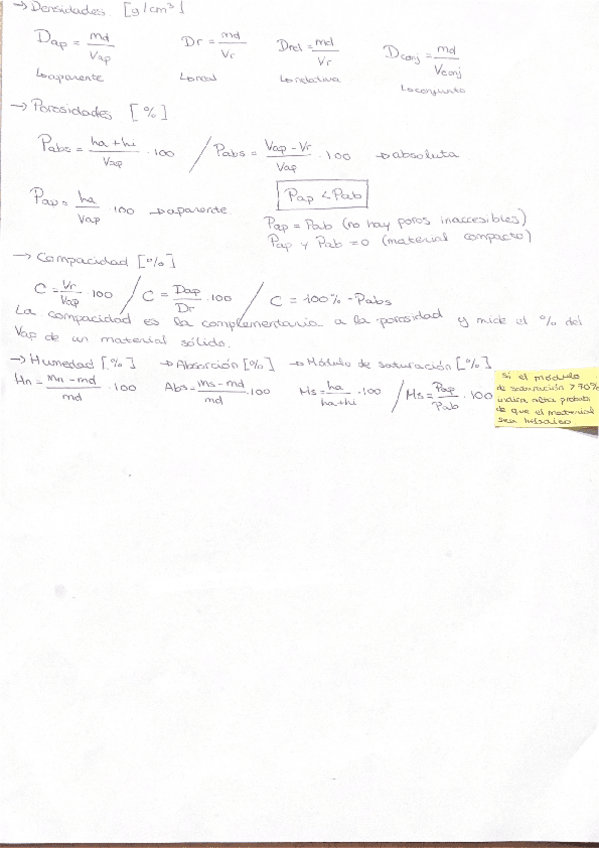 → Densidades. [g/cm³]
Dap = md/Vap Dr = md/Vr Drel = md/Vr Dconj = md/Vconj
↳ aparente ↳ real ↳ relativa ↳ conjunto
→ Porosidades [%]
Pabs = ha + hi/Vap · 100 / Pabs = Vap - Vr/Vap · 100 → absoluta
Pap = ha/Vap · 100 → aparente. Pap < Pab
Pap = Pab (no hay poros inaccesibles)
Pap y Pab = 0 (material compacto)
→ Compacidad [%]
C = Vr/Vap · 100 / C = Dap/Dr · 100 / C = 100% - Pabs
La compacidad es la complementaria a la porosidad y mide el % del
Vap de un material sólido.
→ Humedad [%] → Absorción [%] → Módulo de saturación [%]
Hn = mn - md/md · 100 Abs = ms - md/md · 100 Ms = ha/ha+hi · 100 / Ms = Pap/Pab · 100
Si el módulo
de saturación > 70%
indica alta probab
de que el material
sea